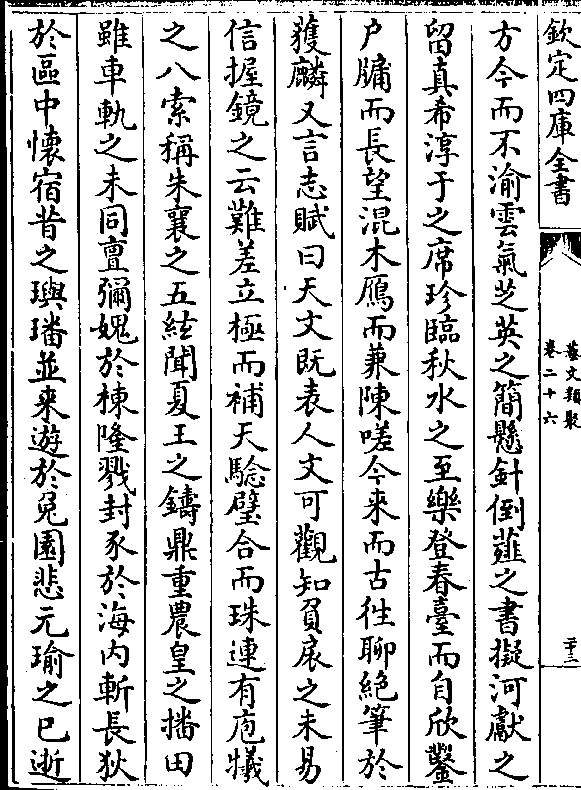 欽定四庫全書
藝文類聚
卷二十六
二十三
方今而不渝雲氣芝英之簡懸針倒薤之書擬河獻之
留真希淳于之席珍臨秋水之至樂登春臺而自欣鑿
户牖而長望混木鴈而兼陳嗟今來而古徃聊絶筆於
獲麟又言志賦曰天文既表人文可觀知負扆之未易
信握鏡之云難差立極而補天驗璧合而珠連有庖犧
之八索稱朱襄之五絃聞夏王之鑄鼎重農皇之播田
雖車軌之未同亶彌媿於棟隆戮封豕於海内斬長狄
於區中懷宿昔之璵璠並來遊於兔園悲元瑜之已逝